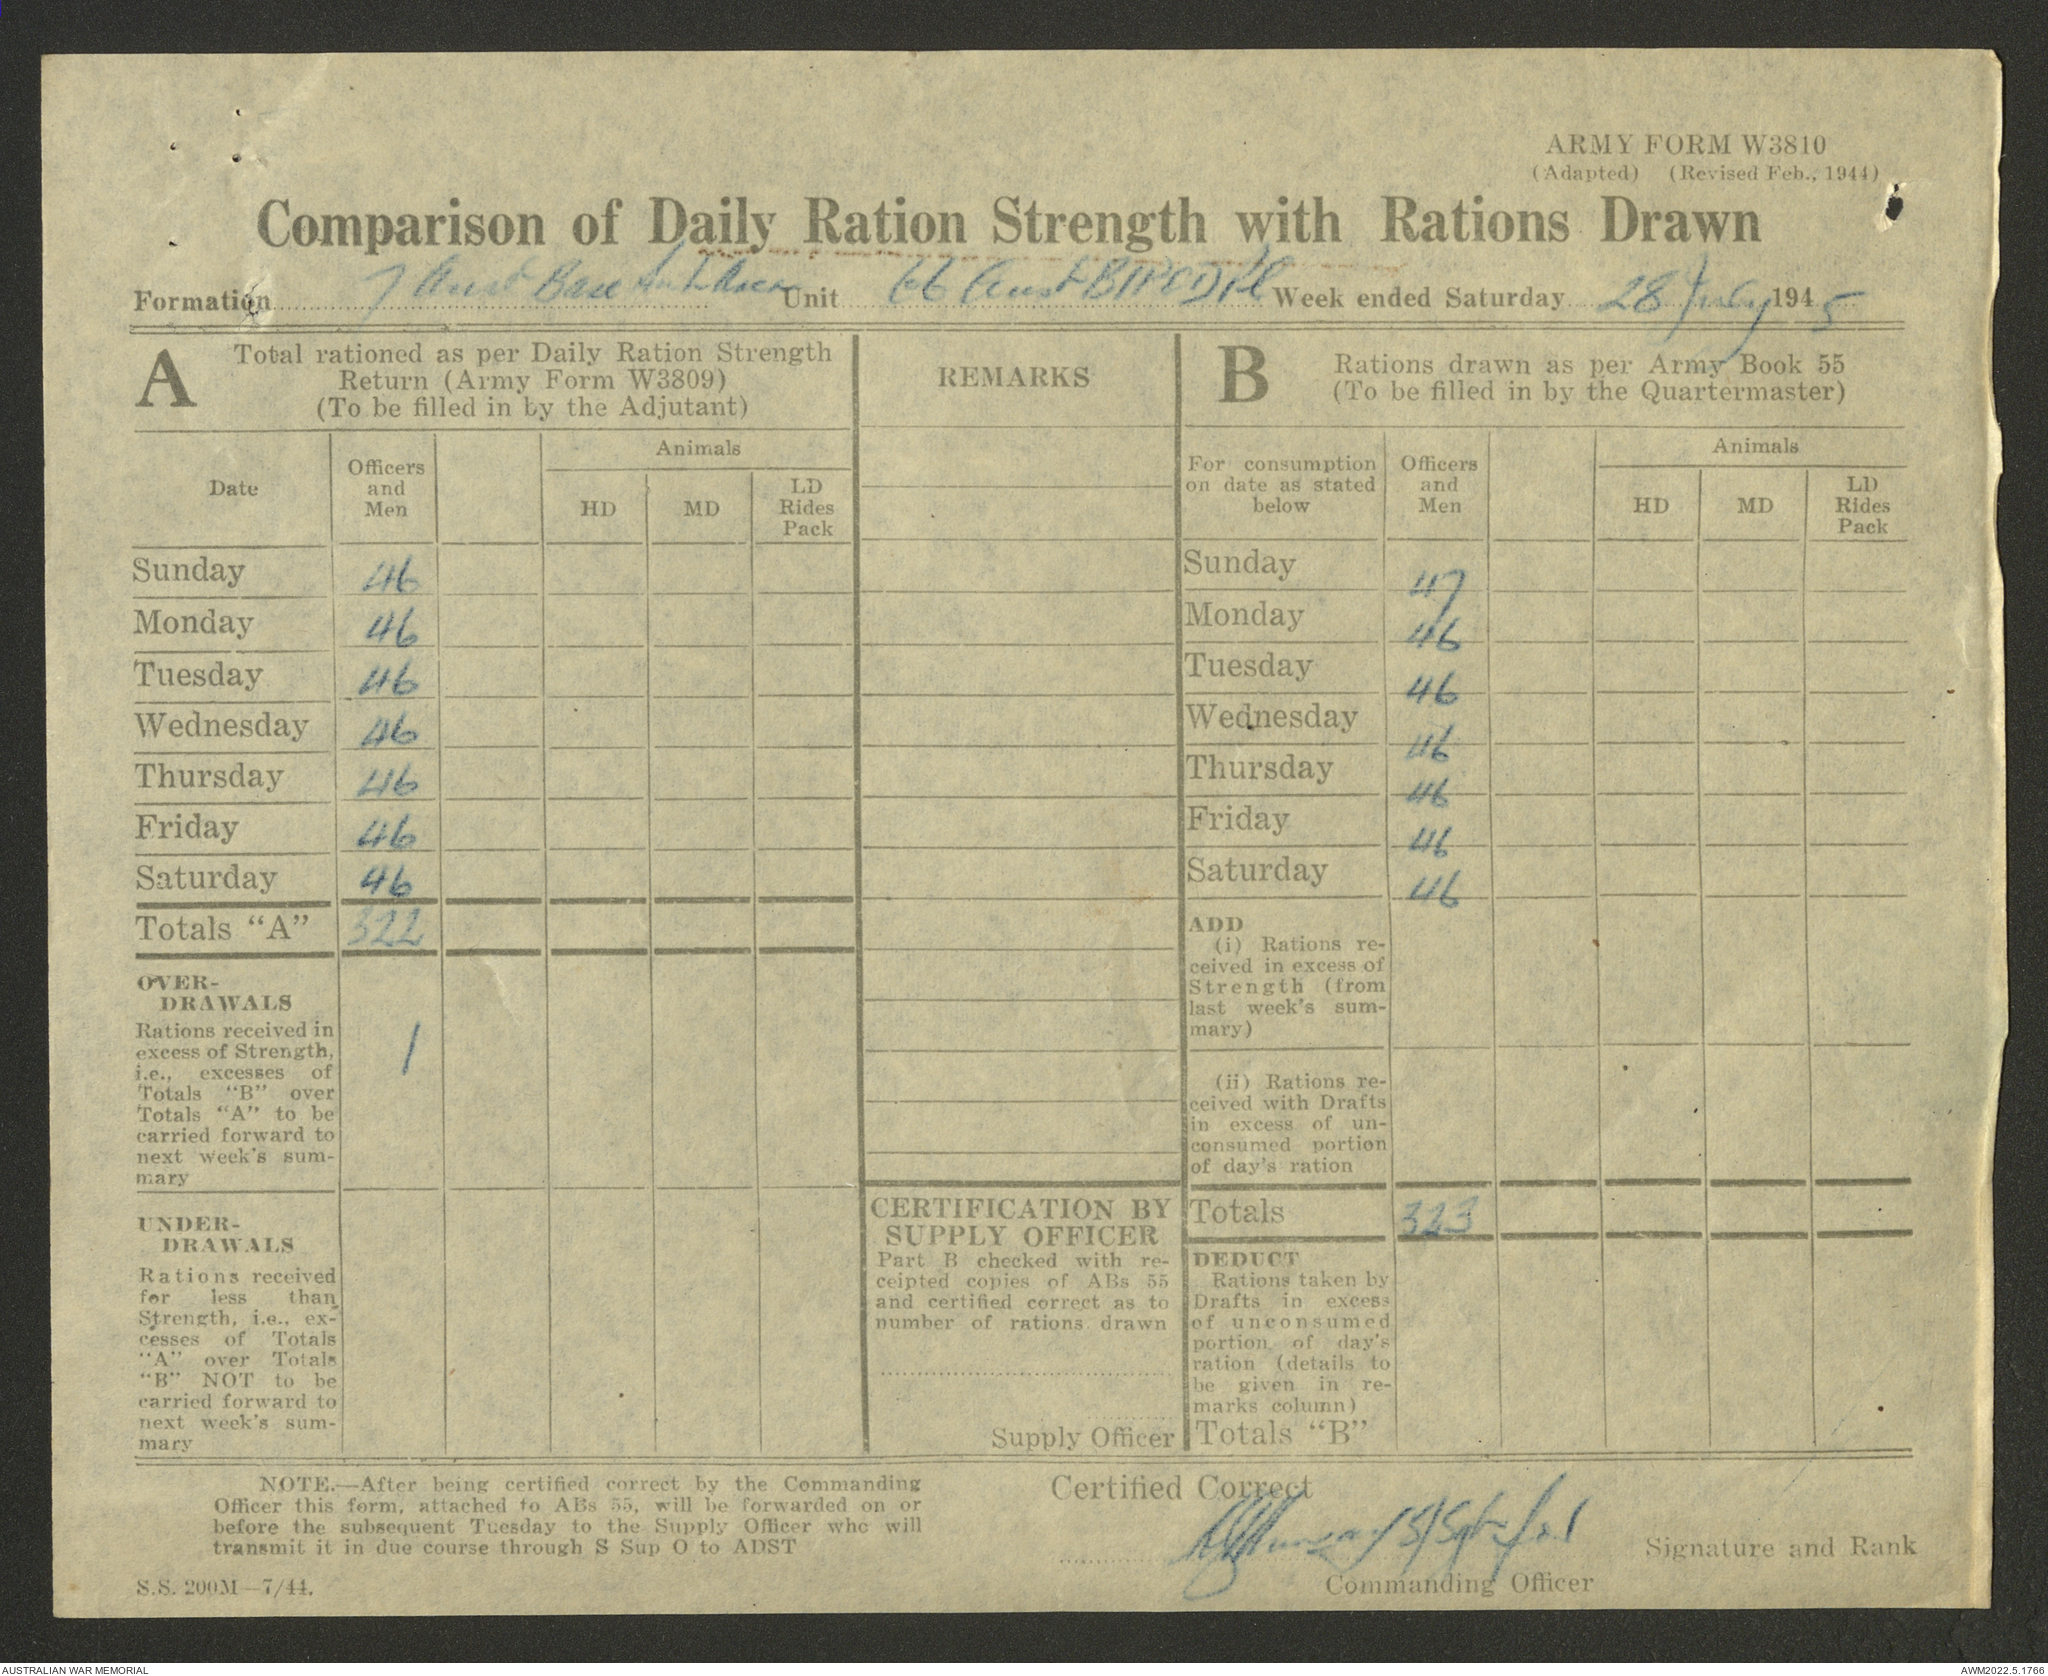 ARMY FORM W3810
(Adapted) (Revised Feb., 1944)
Comparison of Daily Ration Strength with Rations Drawn
Formation 7 Aust Base Sub Area Unit 66 Aust Week ended Saturday 28 July 1945
A
Total rationed as per Daily Ration Strength
Return (Army Form W3809)
(To be filled in by the Adjutant)
REMARKS
B
Rations drawn as per Army Book 55
(To be filled in by the Quartermaster)
Date
Officers
and
Men
Animals
HD
MD
LD
Rides
Pack
For consumption
on date as stated
below
Officers
and
Men
Animals
HD
MD
LD
Rides
Pack
Sunday 46
Monday 46
Tuesday 46
Wednesday 46
Thursday 46
Friday 46
Saturday 46
Totals "A" 322
OVER-
DRAWALS
Rations received in
excess of Strength,
i.e., excesses of
Totals "B" over
Totals "A" to be
carried forward to
next week's sum-
mary
1
UNDER-
DRAWALS
Rations received
for less than
Strength, i.e., ex-
cesses of Totals
"A" over Totals
"B" NOT to be
carried forward to
next week's sum-
mary
CERTIFICATION BY
SUPPLY OFFICER
Part B checked with re-
ceipted copies of ABs 55
and certified correct as to
number of rations drawn
Supply Officer
Sunday 47
Monday 46
Tuesday 46
Wednesday 46
Thursday 46
Friday 46
Saturday 46
ADD
(i) Rations re-
ceived in excess of
Strength (from
last week's sum-
mary)
(ii) Rations re-
ceived with Drafts
in excess of un-
consumed portion
of day's ration
Totals 323
DEDUCT
Rations taken by
Drafts in excess
of unconsumed
portion of day's
ration (details to
be given in re-
marks column)
Totals "B"
NOTE.—After being certified correct by the Commanding
Officer this form, attached to ABs 55, will be forwarded on or
before the subsequent Tuesday to the Supply Officer who will
transmit it in due course through S Sup O to ADST
S.S. 200M—7/44.
Certified Correct
Signature and Rank
Commanding Officer
AUSTRALIAN WAR MEMORIAL
AWM2022.5.1766